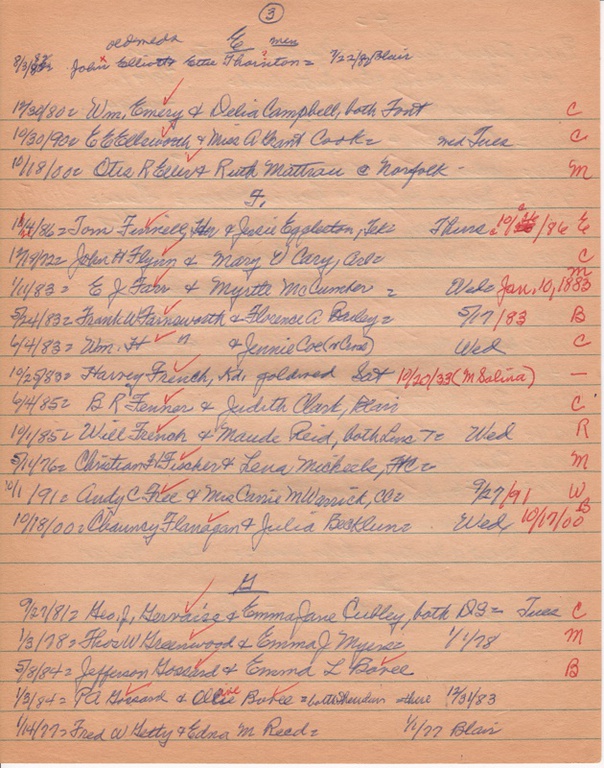 3
E men
8/3/82= John Elliott & Etta Thornton= 7/22/82 Blair
12/30/80= Wm. Emery & Delia Campbell, both Font C
10/30/90= E E Ellsworth & Miss A Grant Cook= md Tues C
10/18/00= Otis R Ellis & Ruth Mattrau @ Norfolk - M
F.
/4/86= Tom Finnell, & Jesie Eggleston, Tek= Thurs /86 E
12/19/72= John H Flynn & Mary W Cary, C
1/11/83= E J Farr & Myrtle McCumber = Wed= Jan, 10, 1883 M
5/24/83= Frank W Farnsworth & Florence A Bailey= 5/17/83 B
6/4/83= Wm. H " & Jennie Coe Wed C
10/25/83= Harvey French, Ka, goldwed Sat 10/20/33 (M Salina) —
6/4/85= B R Fenner & Judith Clark, Blair C
10/1/85= Will French & Maude Reid, both Wed R
5/11/76= Christian H Fischer & Lena Mickeels, = M
10/1/91= Andy C Free & Miss Carrie M Warrick, CO= 9/27/91 W
10/18/00= Chauncy Flanagan & Julia Becklun= Wed, 10/17/00 B
G
9/27/81= Geo. J. Gervaise & Emma Jane Cubley, both DS= Tues C
1/3/78= Thos W Greenwood & Emma J Myers= 1/1/78 M
5/8/84= Jefferson Gossard & Emma L Bovee B
1/3/84= P A Gossard & Bovee = both Sheridan there 12/31/83
1/14/77= Fred W Getty & Edna M Reed= 1/11/77 Blair